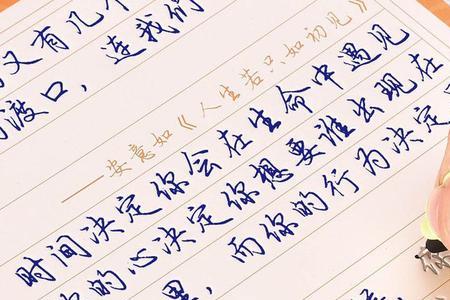 又有几个
渡口，连我们
——安意如《人生若只如初见》
时间决定你会在生命中遇见
的心决定你想要谁出现在
里，而你的行为决定